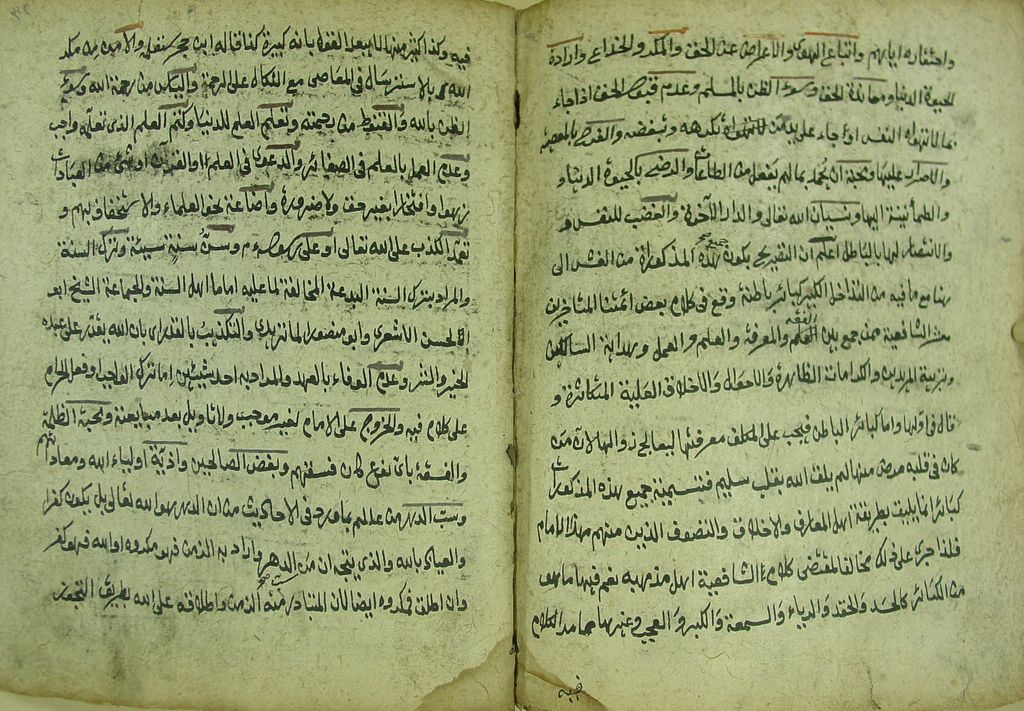 واحتقاره اياهم واتباع الهوى والاعراض عن الحق والمكر والخداع وارادة
الحيوة الدنيا ومعاندة الحق وسوء الظن بالمسلم وعدم قبول الحق اذا جاء
بما لا تهواه النفس او جاء على يد من تكرهه وتبغضه والفرح بالمعصية
والاصرار عليها ومحبة ان يحمد بما لم يفعل من الطاعات والرضى بالحيوة الدنيا و
الطمأنينة اليها ونسيان الله تعالى والدار الآخرة والغضب للنفس و
والانتصار لها بالباطل اعلم ان التصريح بكون جميع هذه المذكورة من الفسق الى
هنا مع ما فيه من التداخل الكبير كبائر باطنة وقع في كلام بعض ائمتنا المتأخرين
من الشافعية ممن جمع بين الفقه والمعرفة والعلم والعمل وهداية السالكين
وتربية المريدين والكرامات الظاهرة والاحوال والاخلاق العلية المتكاثرة و
قال في اولها واما كبائر الباطن فيجب على المكلف معرفتها ليعالج زوالها لان من
كان في قلبه مرض منها لم يلق الله بقلب سليم فتسمية جميع هذه المذكورات
كبائر انما يليق بطريقة اهل المعارف والاخلاق والتصوف الذين منهم هذا الامام
فلذا جرى على ذلك مخالفا لمقتضى كلام الشافعية اهل مذهبه نعم فيها ما هو
من الكبائر كالحسد والحقد والرياء والسمعة والكبر والعجب وغيرها مما مر الكلام
فيه
فيه وكذا كثير منها للتصريح الفقهاء بانه كبيرة كذا قاله ابن حجر والامن من مكر
الله تعالى بالاسترسال في المعاصي مع الاتكال على الرحمة واليأس من رحمة الله وسوء
الظن بالله والقنوط من رحمته وتعلم العلم للدنيا وكتم العلم الذي تعليمه واجب
وعدم العمل بالعلم في الصغائر والدعوى في العلم او القرآن او شيء من العبادات
زهوا وافتخارا بغير حق ولا ضرورة واضاعة نحو العلماء والاستخفاف بهم و
تعمد الكذب على الله تعالى او على رسوله وسنّ سنة سيئة وترك السنة
والمراد بترك السنة البدعة المخالفة لما عليه اماما اهل السنة والجماعة الشيخ ابو
الحسن الاشعري وابو منصور الماتريدي والتكذيب بالقدر اي بان الله يقدر على عبده
الخير والشر وعدم الوفاء بالعهد والمراد به احد شيئين اما ترك الواجب او فعل الحرام
على كلام فيه والخروج على الامام لغير موجب ولا تأويل بعد مبايعته ومحبة الظلمة
والفسقة باي نوع كان فسقهم وبغض الصالحين واذية اولياء الله ومعاداتهم
وسب الدهر من عالم بما ورد في الاحاديث من ان الدهر هو الله تعالى بل يكون كفرا
والعياذ بالله والذي يتجه ان من سب الدهر واراد به الزمن فهو مكروه او الله فهو كفر
وان اطلق فمكروه ايضا لان المتبادر منه الزمن واطلاقه على الله بطريق التجوز